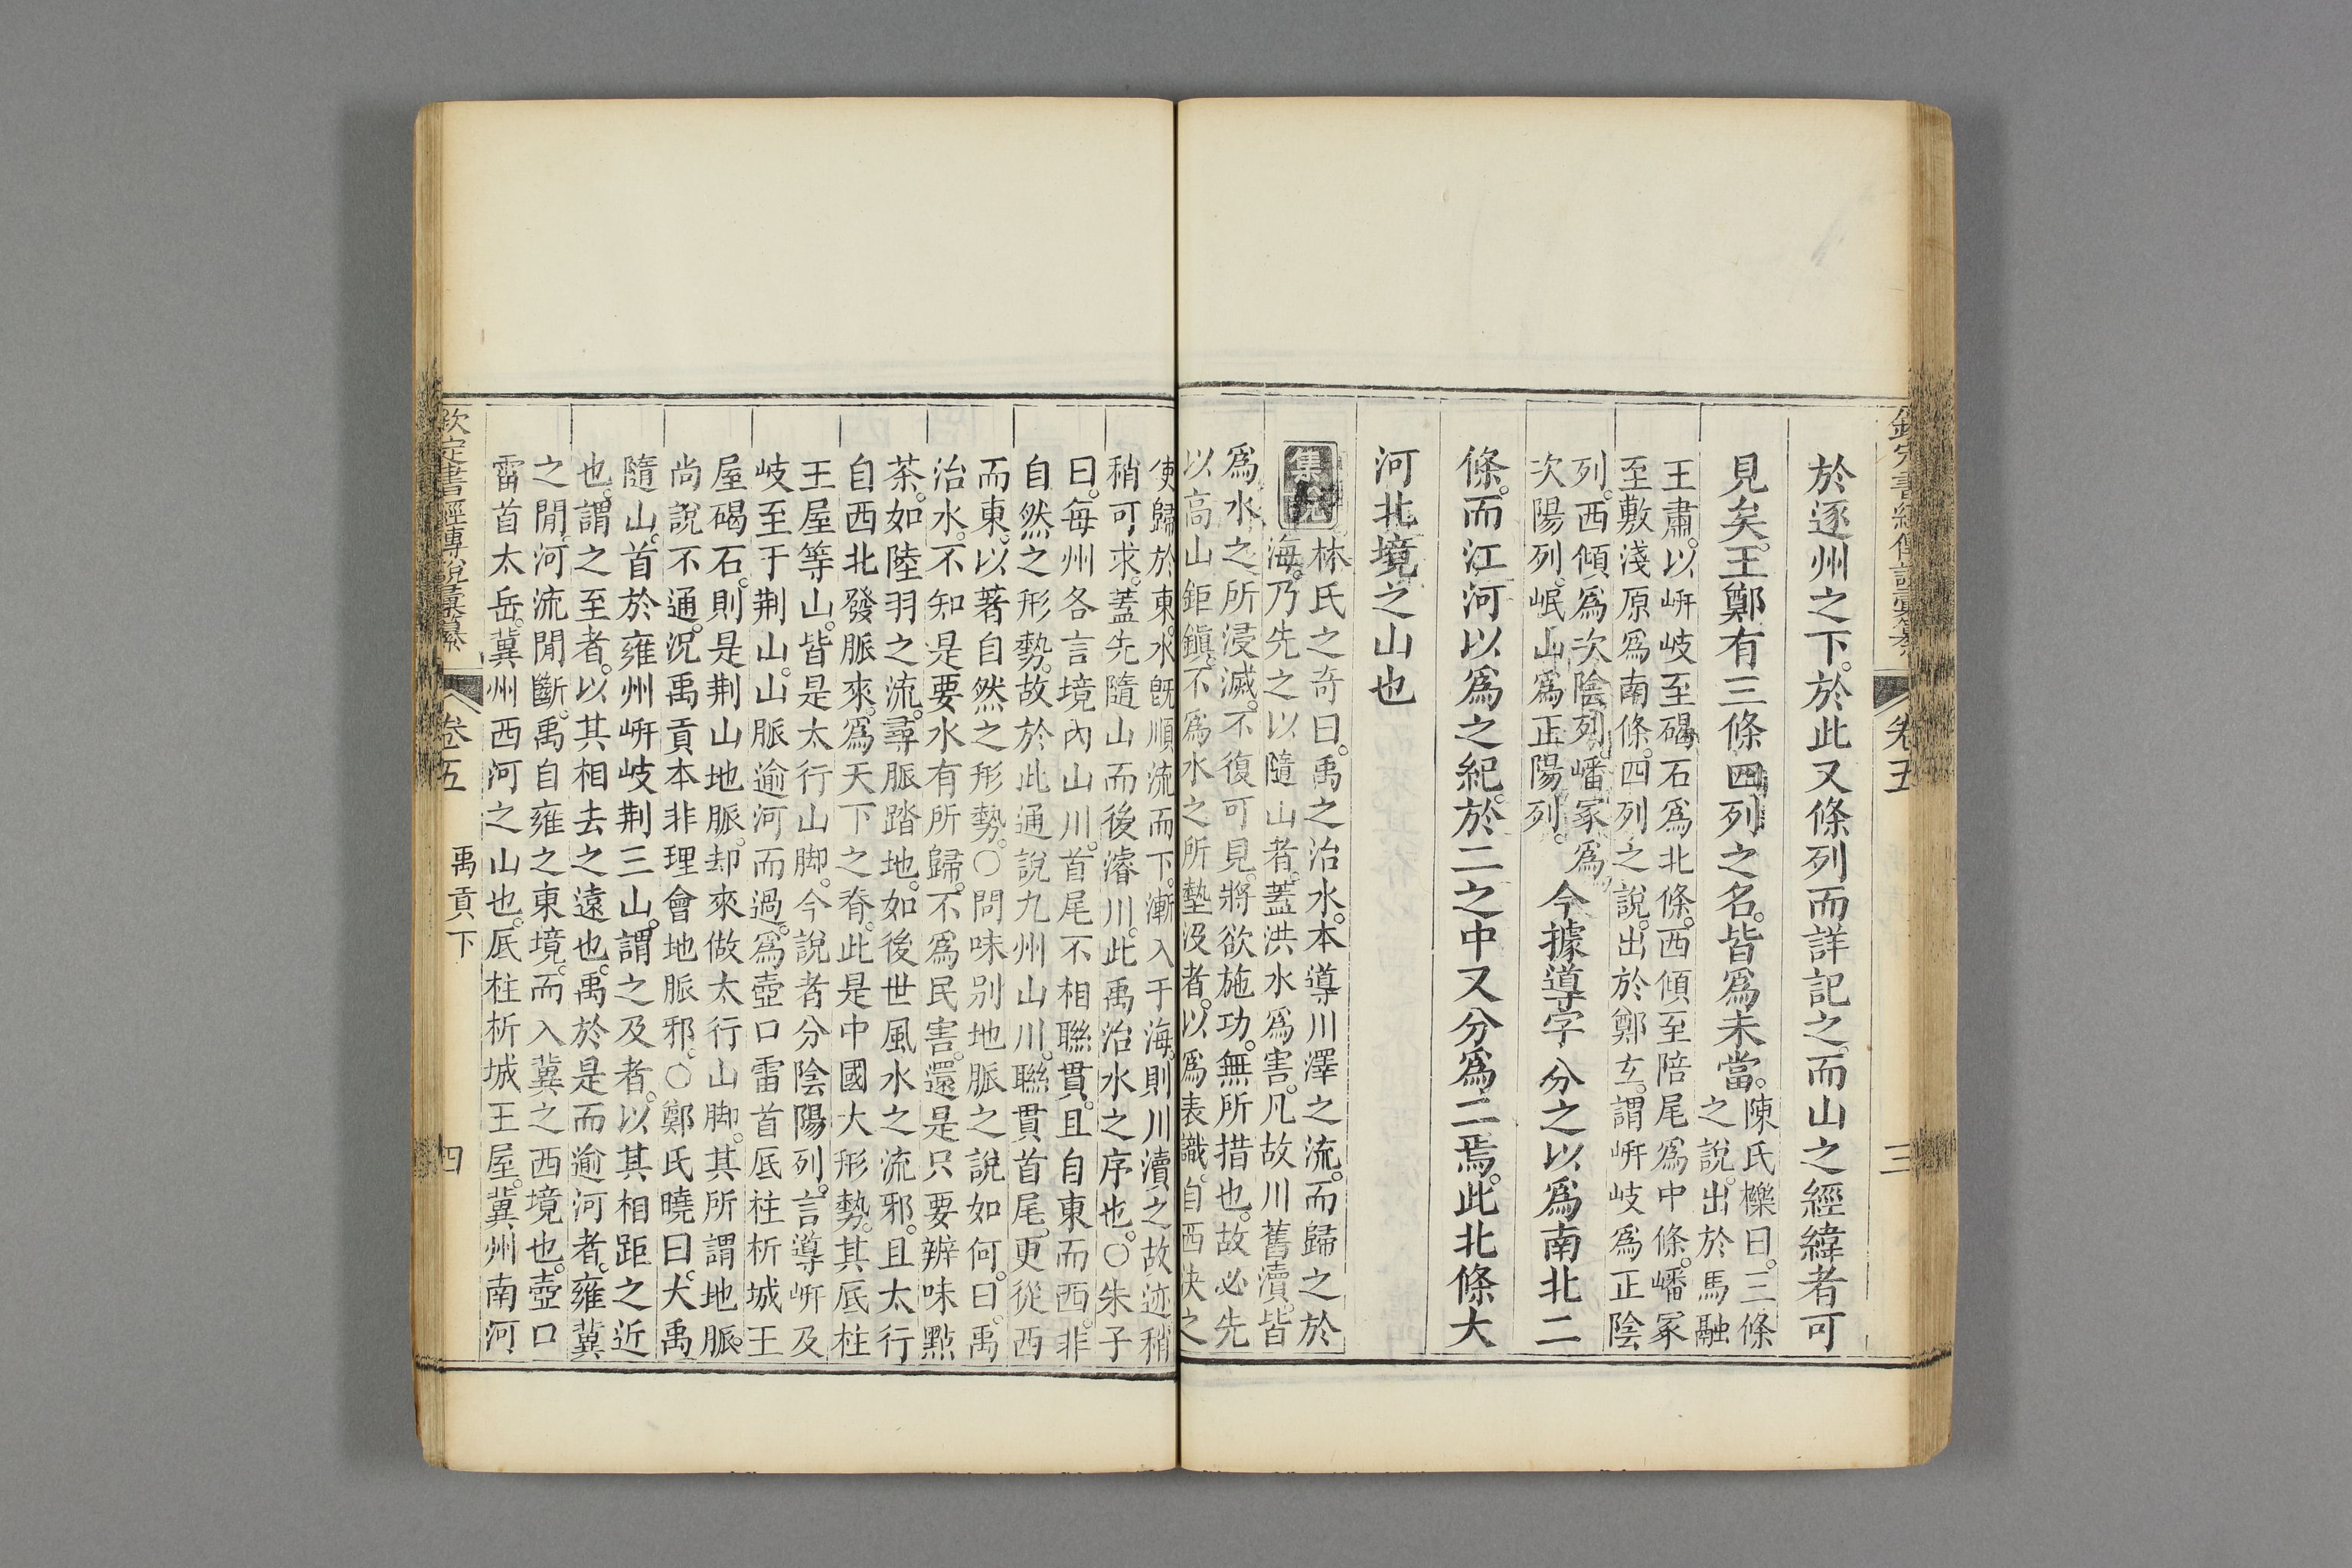 欽定書經傳說彙纂 卷五 三
於逐州之下。於此又條列而詳記之。而山之經緯者可
見矣。王鄭有三條四列之名。皆爲未當。陳氏櫟曰。三條
之說。出於馬融
王肅。以岍岐至碣石爲北條。西傾至陪尾爲中條。嶓冢
至敷淺原爲南條。四列之說。出於鄭玄。謂岍岐爲正陰
列。西傾爲次陰列。嶓冢爲
次陽列。岷山爲正陽列。
今據導字分之以爲南北二
條。而江河以爲之紀。於二之中又分爲二焉。此北條大
河北境之山也
集說
林氏之奇曰。禹之治水。本導川澤之流。而歸之於
海。乃先之以隨山者。蓋洪水爲害。凡故川舊瀆。皆
爲水之所浸滅。不復可見。將欲施功。無所措也。故必先
以高山鉅鎭。不爲水之所墊沒者。以爲表識。自西決之
使歸於東。水旣順流而下。漸入于海。則川瀆之故迹稍
稍可求。蓋先隨山而後濬川。此禹治水之序也。○朱子
曰。每州各言境內山川。首尾不相聯貫。且自東而西。非
自然之形勢。故於此通說九州山川。聯貫首尾。更從西
而東。以著自然之形勢。○問味別地脈之說如何。曰。禹
治水。不知是要水有所歸。不爲民害。還是只要辨味點
茶。如陸羽之流。尋脈踏地。如後世風水之流邪。且太行
自西北發脈來。爲天下之脊。此是中國大形勢。其厎柱
王屋等山。皆是太行山脚。今說者分陰陽列。言導岍及
岐至于荆山。山脈逾河而過。爲壺口雷首厎柱析城王
屋碣石。則是荆山地脈。却來做太行山脚。其所謂地脈。
尚說不通。況禹貢本非理會地脈邪。○鄭氏曉曰。大禹
隨山。首於雍州岍岐荆三山。謂之及者。以其相距之近
也。謂之至者。以其相去之遠也。禹於是而逾河者。雍冀
之閒。河流閒斷。禹自雍之東境。而入冀之西境也。壺口
雷首太岳。冀州西河之山也。厎柱析城王屋。冀州南河
欽定書經傳說彙纂 卷五 禹貢下 四